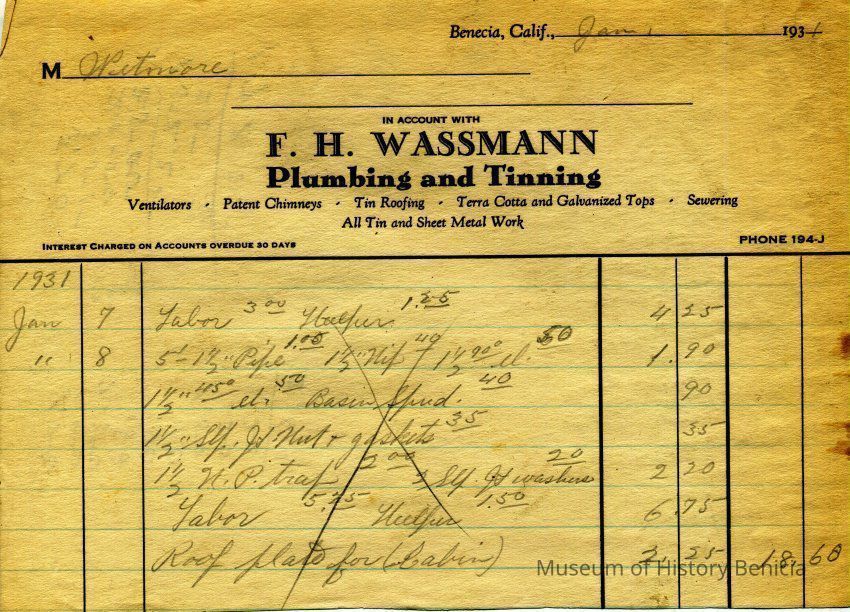 Benecia, Calif., Jan 1 1931
M Wetmore
IN ACCOUNT WITH
F. H. WASSMANN
Plumbing and Tinning
Ventilators - Patent Chimneys - Tin Roofing - Terra Cotta and Galvanized Tops - Sewering
All Tin and Sheet Metal Work
INTEREST CHARGED ON ACCOUNTS OVERDUE 30 DAYS PHONE 194-J
1931
Jan 7 Labor 3.00 Helper 1.25 4 25
" 8 5' 1½" Pipe 1.00 1½" Nip 40 1½ 90° el. 50 1.90
1½" 45° el. 50 Basin Spud. 40 90
1½" Slp. Jt Nut & gaskets 35 35
1½ N.P. trap 2.00 2 Slp. Jt washers 20 2 20
Labor 5.25 Helper 1.50 6.75
Roof for (Cabin) 2.25 18.60
Museum of History Benicia